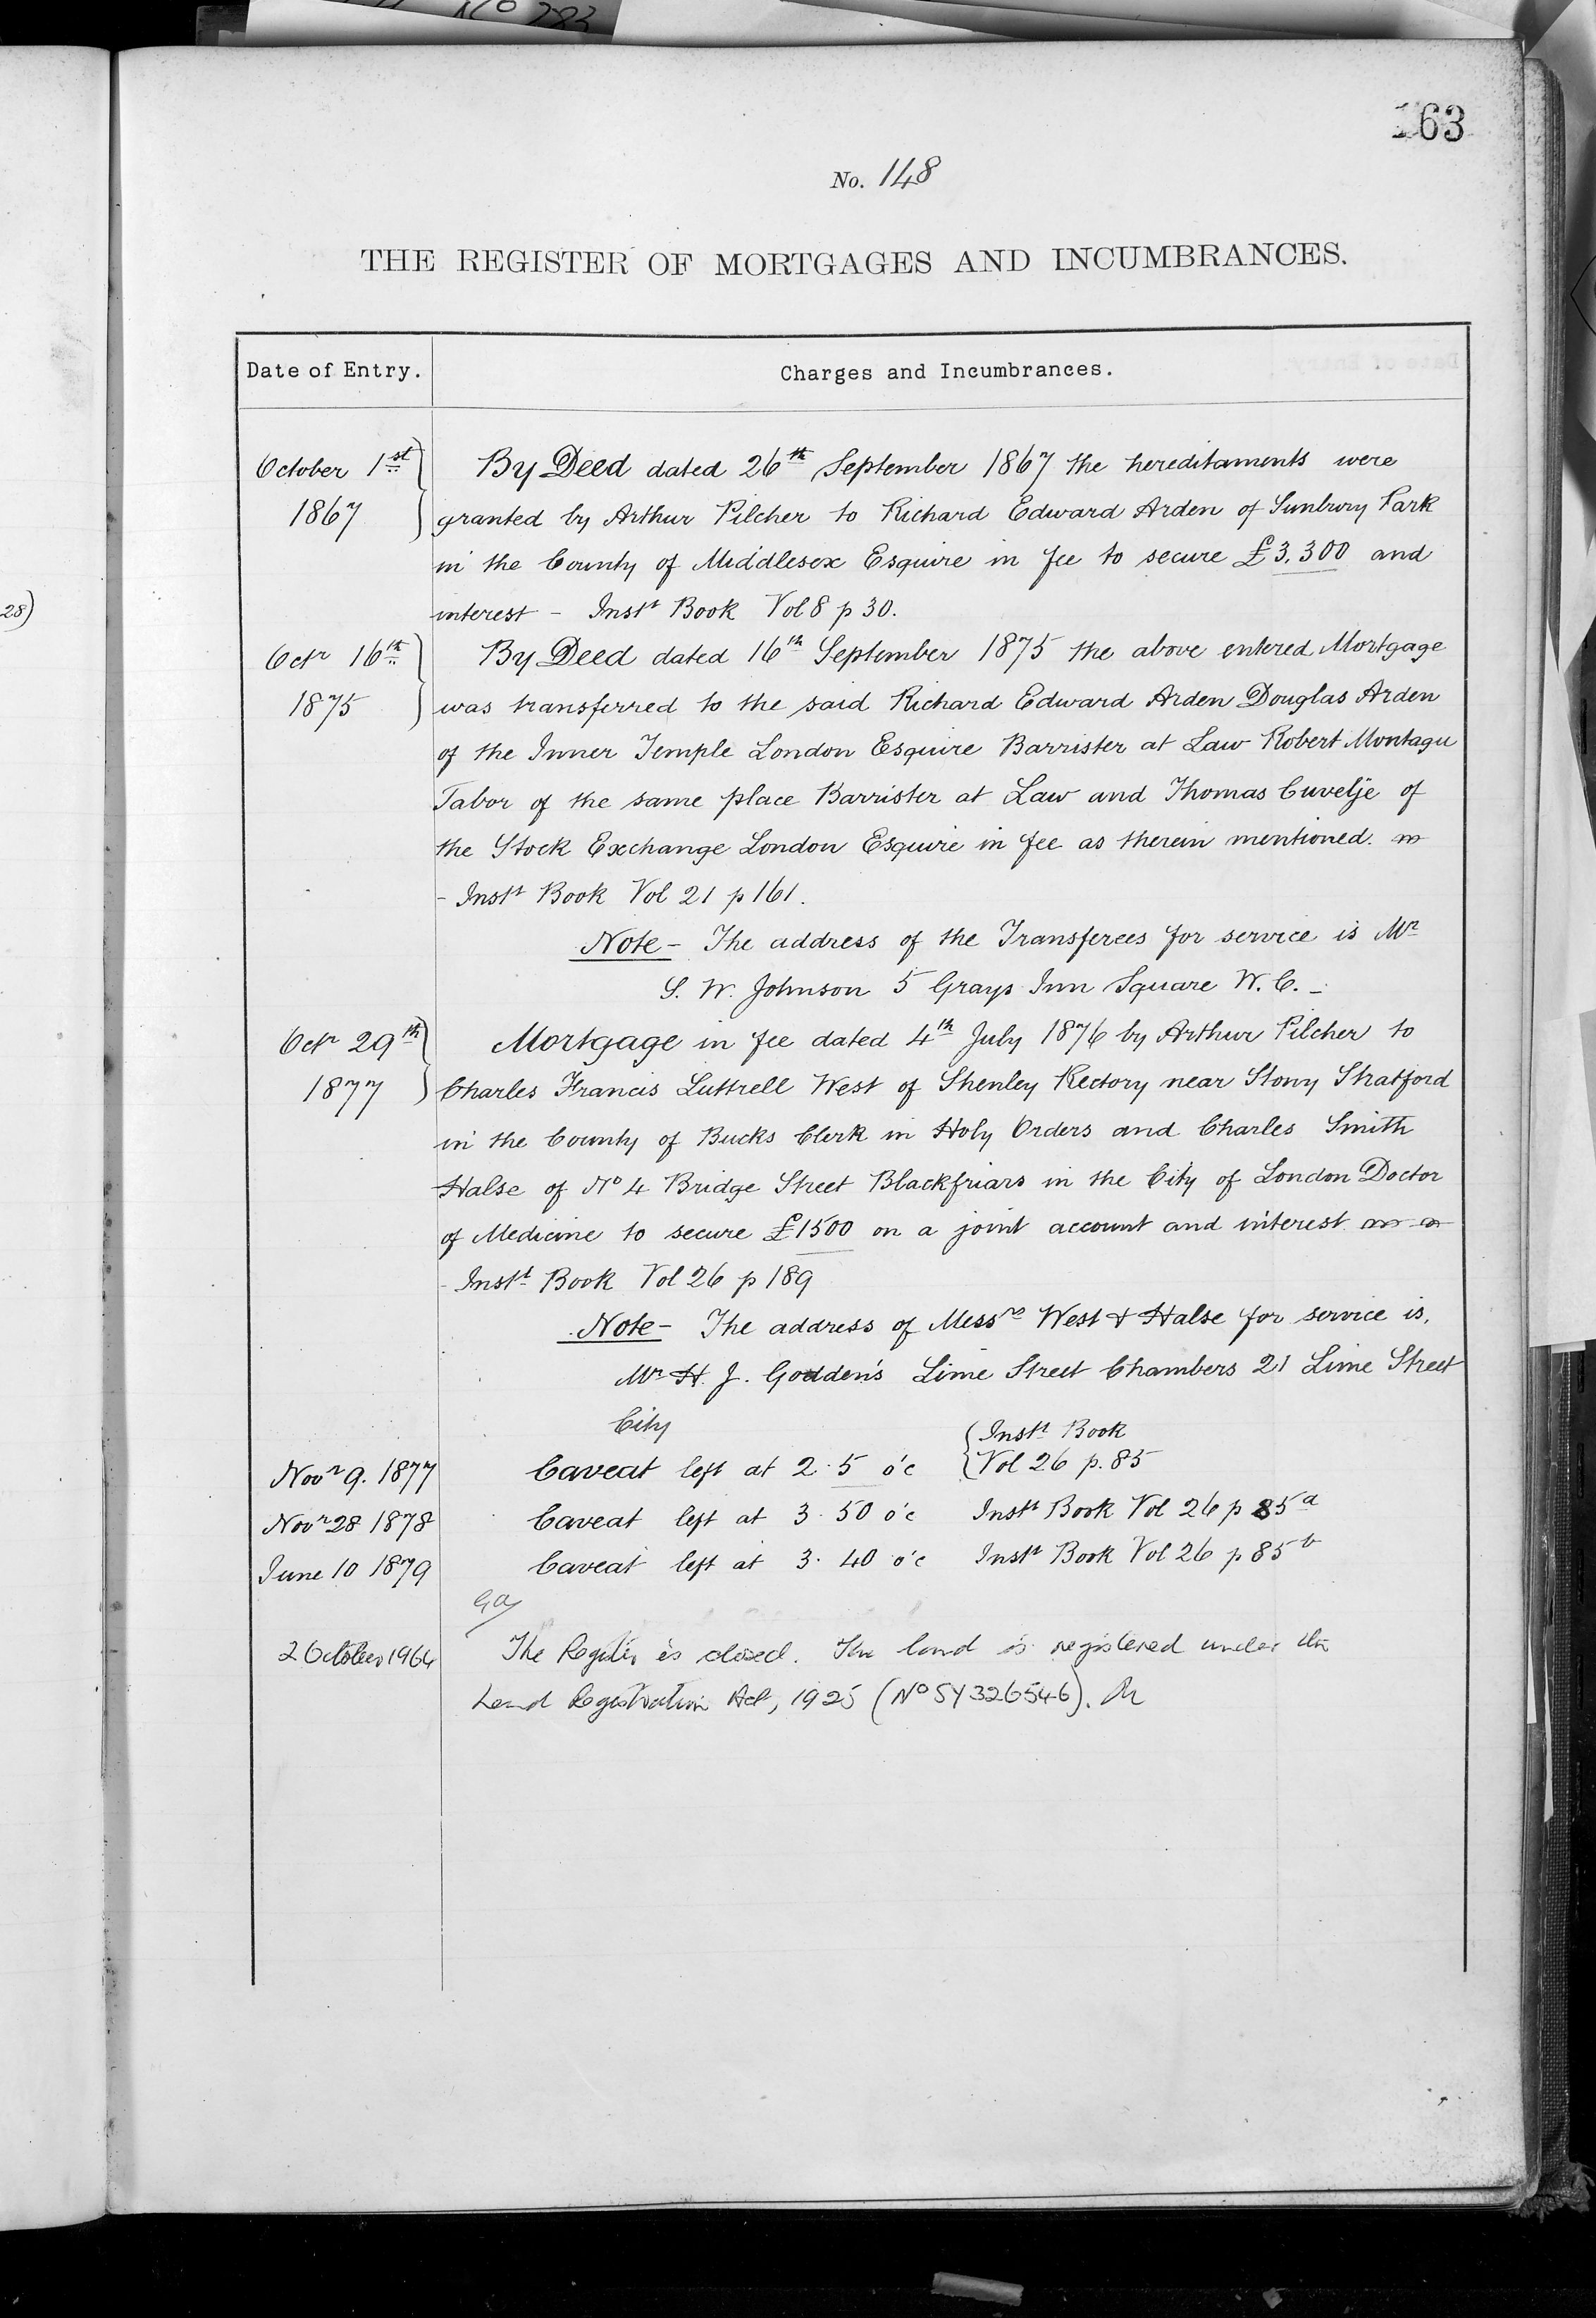 No 283
163
No. 148
THE REGISTER OF MORTGAGES AND INCUMBRANCES.
Date of Entry.
Charges and Incumbrances.
28)
October 1st 1867
By Deed dated 26th September 1867 the hereditaments were
granted by Arthur Pilcher to Richard Edward Arden of Sunbury Park
in the County of Middlesex Esquire in fee to secure £3,300 and
interest - Instt Book Vol 8 p 30.
Octr 16th 1875
By Deed dated 16th September 1875 the above entered Mortgage
was transferred to the said Richard Edward Arden Douglas Arden
of the Inner Temple London Esquire Barrister at Law Robert Montagu
Tabor of the same place Barrister at Law and Thomas Cuvelje of
the Stock Exchange London Esquire in fee as therein mentioned.
- Instt Book Vol 21 p 161.
Note - The address of the Transferees for service is Mr
S. W. Johnson 5 Grays Inn Square W. C. -
Octr 29th 1877
Mortgage in fee dated 4th July 1876 by Arthur Pilcher to
Charles Francis Luttrell West of Shenley Rectory near Stony Stratford
in the County of Bucks Clerk in Holy Orders and Charles Smith
Halse of No 4 Bridge Street Blackfriars in the City of London Doctor
of Medicine to secure £1500 on a joint account and interest
- Instt Book Vol 26 p 189
Note - The address of Messrs West & Halse for service is,
Mr H. J. Godden's Lime Street Chambers 21 Lime Street
City
Novr 9. 1877 Caveat left at 2.5 o'c { Instt Book
Vol 26 p. 85
Novr 28 1878 Caveat left at 3.50 o'c Instt Book Vol 26 p 85a
June 10 1879 Caveat left at 3.40 o'c Instt Book Vol 26 p 85b
2 October 1964 The Register is closed. The land is registered under the
Land Registration Act, 1925 (No SY326546).